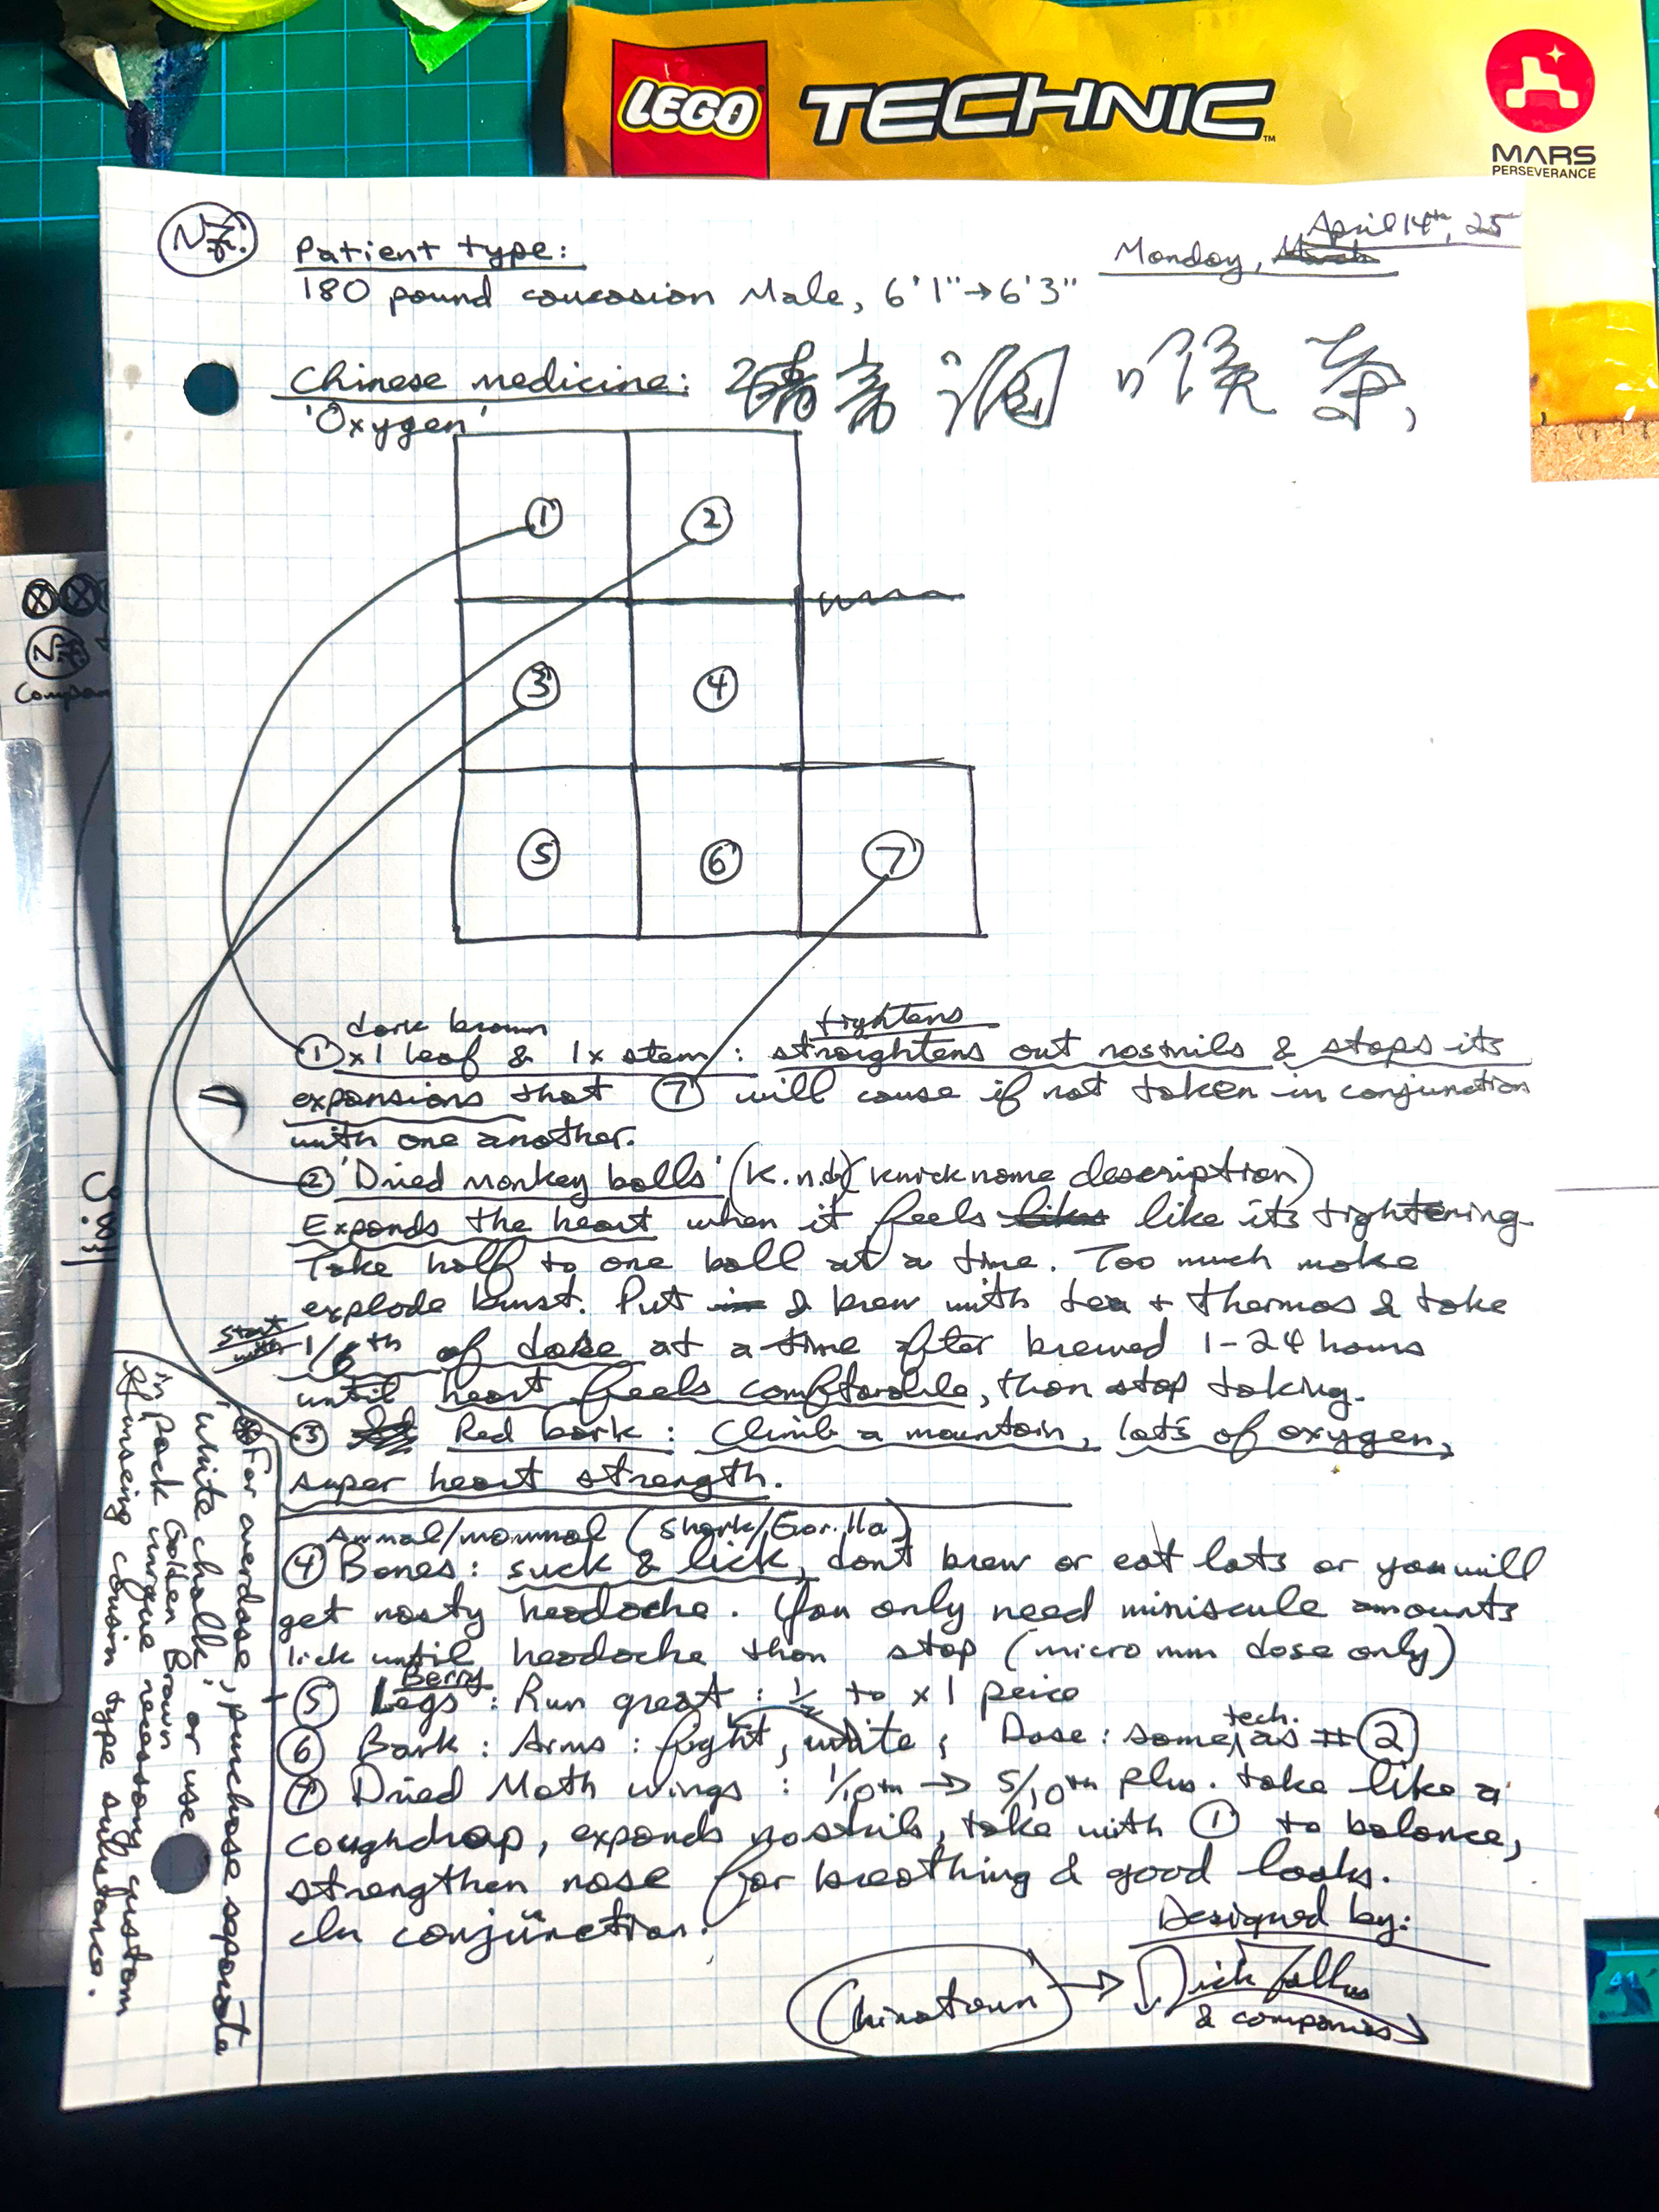 LEGO TECHNIC™
MARS
PERSEVERANCE
April 14th, 25
Monday,
Patient type:
180 pound coucosion Male, 6'1"→6'3"
Chinese medicine: 润 喉 茶,
'Oxygen'
1 2
3 4
5 6 7
dark brown tightens
① x1 leaf & 1x stem: straightens out nostrils & stops its
expansions that ⑦ will cause if not taken in conjunction
with one another.
② 'Dried monkey balls' (K.n.d)( knick nome description)
Expands the heart when it feels like its tightening.
Take half to one ball at a time. Too much make
explode burst. Put & brew with tea + thermos & take
start with 1/6th of dose at a time after brewed 1-24 hours
until heart feels comftorable, than stop taking.
③ Red bark: Climb a mountain, lots of oxygen,
super heart strength.
Animal/mammal (Shark/Gorilla)
④ Bones: suck & lick, don't brew or eat lots or you will
get nasty headache. You only need miniscule amounts
lick until headache than stop (micro mm dose only)
Berry
⑤ Legs: Run great: 1/2 to x1 peice
⑥ Bark: Arms: fight, write, Dose: same tech. as #②
⑦ Dried Moth wings: 1/10th → 5/10th plus. take like a
coughdrop, expands nostrils, take with ① to balance,
strengthen nose for breathing & good looks.
In conjunction.
Designed by:
Chinatown → Dick
& companies
For overdose, purchase separate
'white chalk', or use
in pack Golden Brown
unique necessary custom
Ginseng cousin type substance.